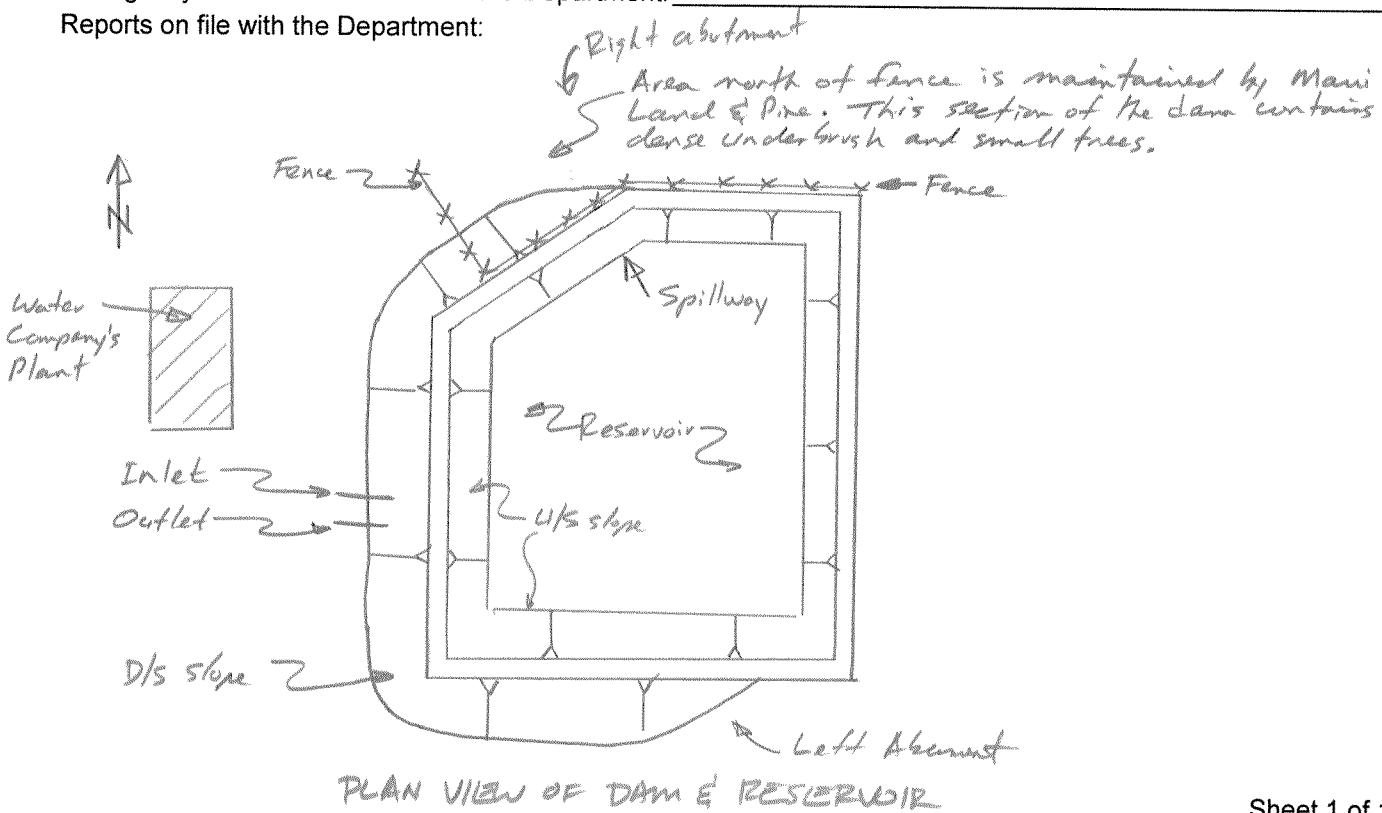 Reports on file with the Department:
Right abutment
Area north of fence is maintained by Maui
Land & Pine. This section of the dam contains
dense underbrush and small trees.
Fence
Fence
N
Spillway
Water
Company's
Plant
Reservoir
Inlet
Outlet
U/S slope
D/S slope
Left Abument
PLAN VIEW OF DAM & RESERVOIR
Sheet 1 of